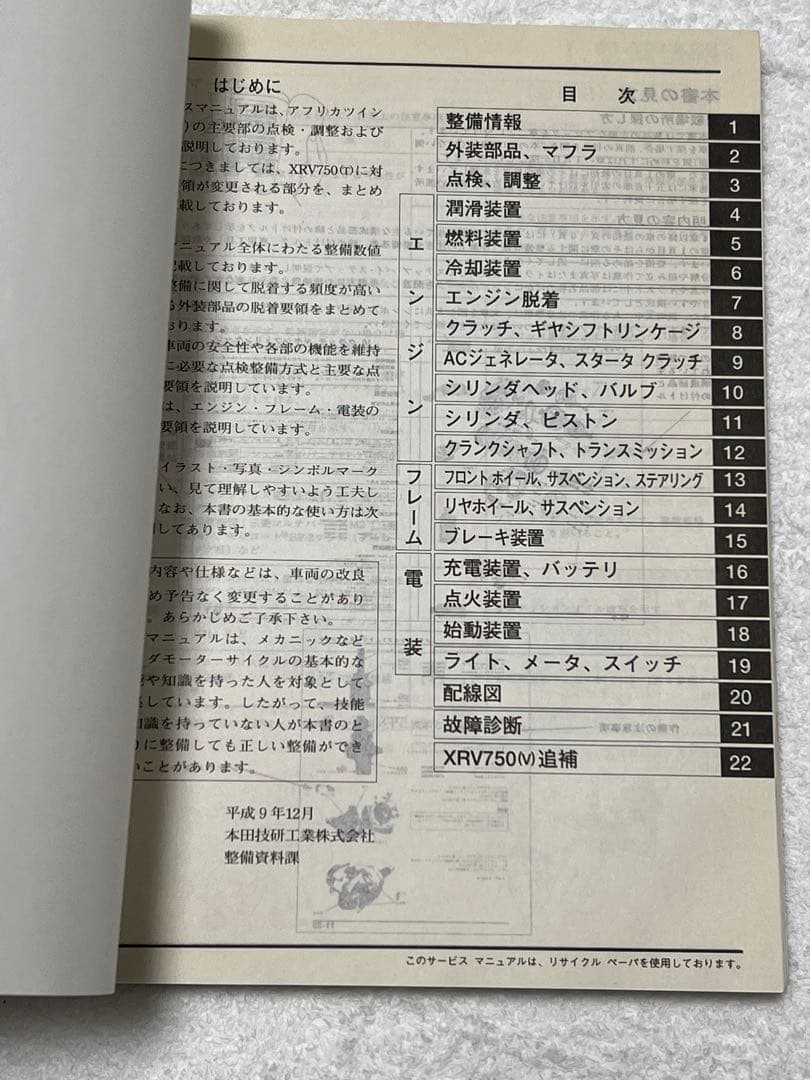 はじめに
スマニュアルは、アフリカツイン
)の主要部の点検・調整および
説明しております。
につきましては、XRV750(T)に対
領が変更される部分を、まとめ
載しております。
ニュアル全体にわたる整備数値
記載しております。
整備に関して脱着する頻度が高い
る外装部品の脱着要領をまとめて
おります。
車両の安全性や各部の機能を維持
に必要な点検整備方式と主要な点
要領を説明しています。
は、エンジン・フレーム・電装の
要領を説明しています。
イラスト・写真・シンボルマーク
い、見て理解しやすいよう工夫し
なお、本書の基本的な使い方は次
明してあります。
内容や仕様などは、車両の改良
め予告なく変更することがあり
。あらかじめご了承下さい。
マニュアルは、メカニックなど
ダモーターサイクルの基本的な
や知識を持った人を対象として
しています。したがって、技能
知識を持っていない人が本書のと
りに整備しても正しい整備ができ
いことがあります。
平成9年12月
本田技研工業株式会社
整備資料課
目 次
整備情報 1
外装部品、マフラ 2
点検、調整 3
エンジン
潤滑装置 4
燃料装置 5
冷却装置 6
エンジン脱着 7
クラッチ、ギヤシフトリンケージ 8
ACジェネレータ、スタータ クラッチ 9
シリンダヘッド、バルブ 10
シリンダ、ピストン 11
クランクシャフト、トランスミッション 12
フレーム
フロント ホイール、サスペンション、ステアリング 13
リヤホイール、サスペンション 14
ブレーキ装置 15
電装
充電装置、バッテリ 16
点火装置 17
始動装置 18
ライト、メータ、スイッチ 19
配線図 20
故障診断 21
XRV750(V)追補 22
このサービス マニュアルは、リサイクル ペーパを使用しております。